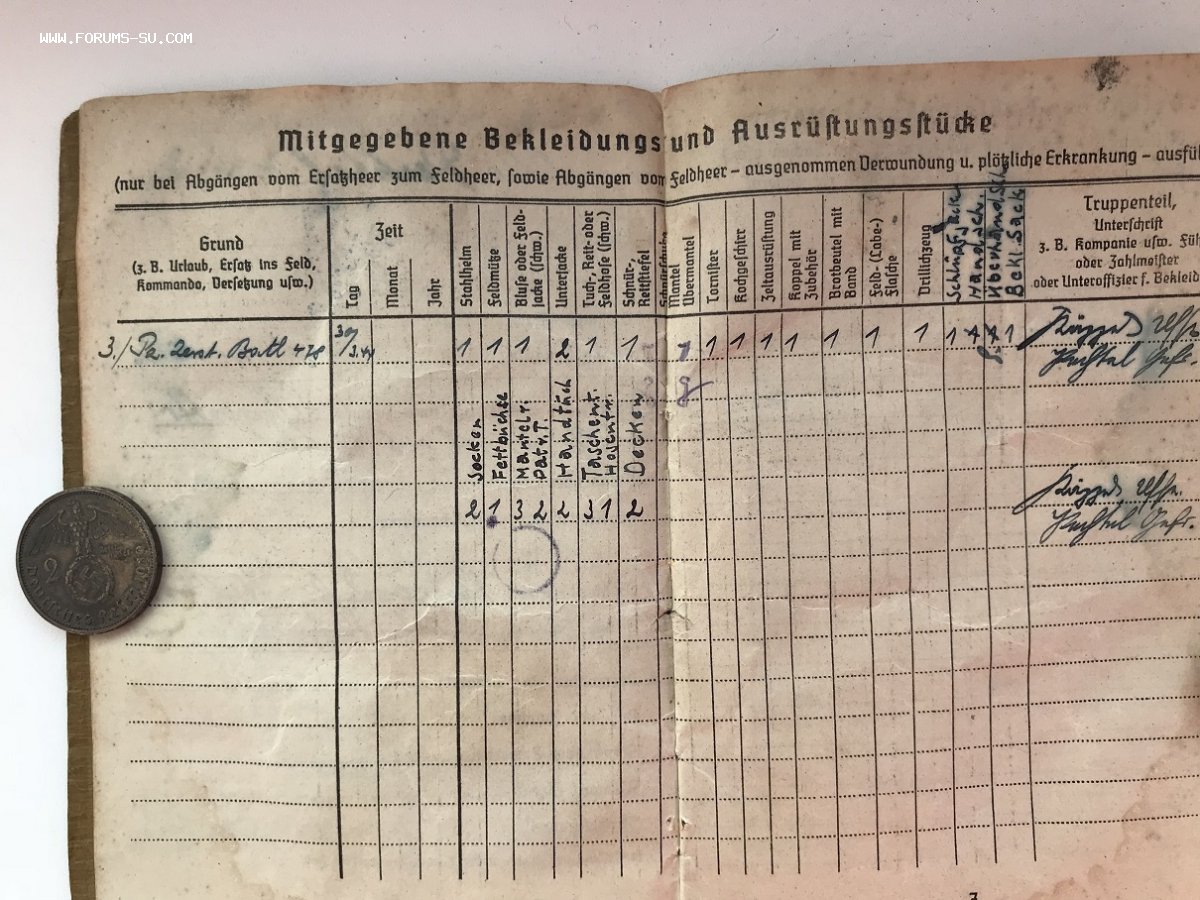 WWW.FORUMS-SU.COM
Mitgegebene Bekleidungs und Ausrüstungsstücke
(nur bei Abgängen vom Ersatzheer zum Feldheer, sowie Abgängen vom Feldheer – ausgenommen Verwundung u. plötzliche Erkrankung – ausfü
Grund
(z. B. Urlaub, Ersatz ins Feld,
Kommando, Versetzung usw.)
Zeit
Tag
Monat
Jahr
Stahlhelm
Feldmütze
Bluse oder Feld-
jacke (schw.)
Unterjacke
Tuch-, Reit- oder
Feldhose (schw.)
Schnür-,
Reitstiefel
Mantel
Übermantel
Tornister
Kochgeschirr
Zeltausrüstung
Koppel mit
Zubehör
Brotbeutel mit
Band
Feld- (Labe-)
Flasche
Drillichzeug
Schlupfjack
Handsch.
Überhandsch
Bekl. Sack
Truppenteil,
Unterschrift
z. B. Kompanie usw. Füh
oder Zahlmeister
oder Unteroffizier f. Bekleid
3./Pz. Zerst. Batl 478 30/3.44 1 1 1 2 1 1 1 1 1 1 1 1 1 1 1 1
Socken
Fettbüchse
Mantelr.
Patr.T.
Handtuch
Taschent.
Hosentr.
Decken
2 1 3 2 2 3 1 2
2